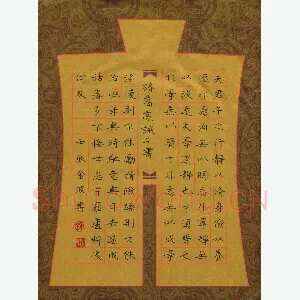 夫君子之行靜以修身儉以養
德非澹泊無以明志非寧靜無
以致遠夫學須靜也才須學
也非學無以廣才非志無以成學
諸葛亮誡子書
淫慢則不能勵精險躁則不能
治性年與時馳意與日去遂成
枯落多不接世悲守窮廬將復
何及